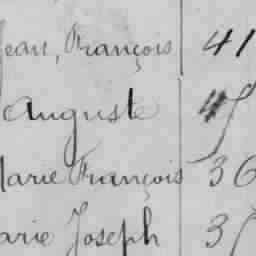 Jean, François 41
Auguste 45
Marie François 36
Marie Joseph 35